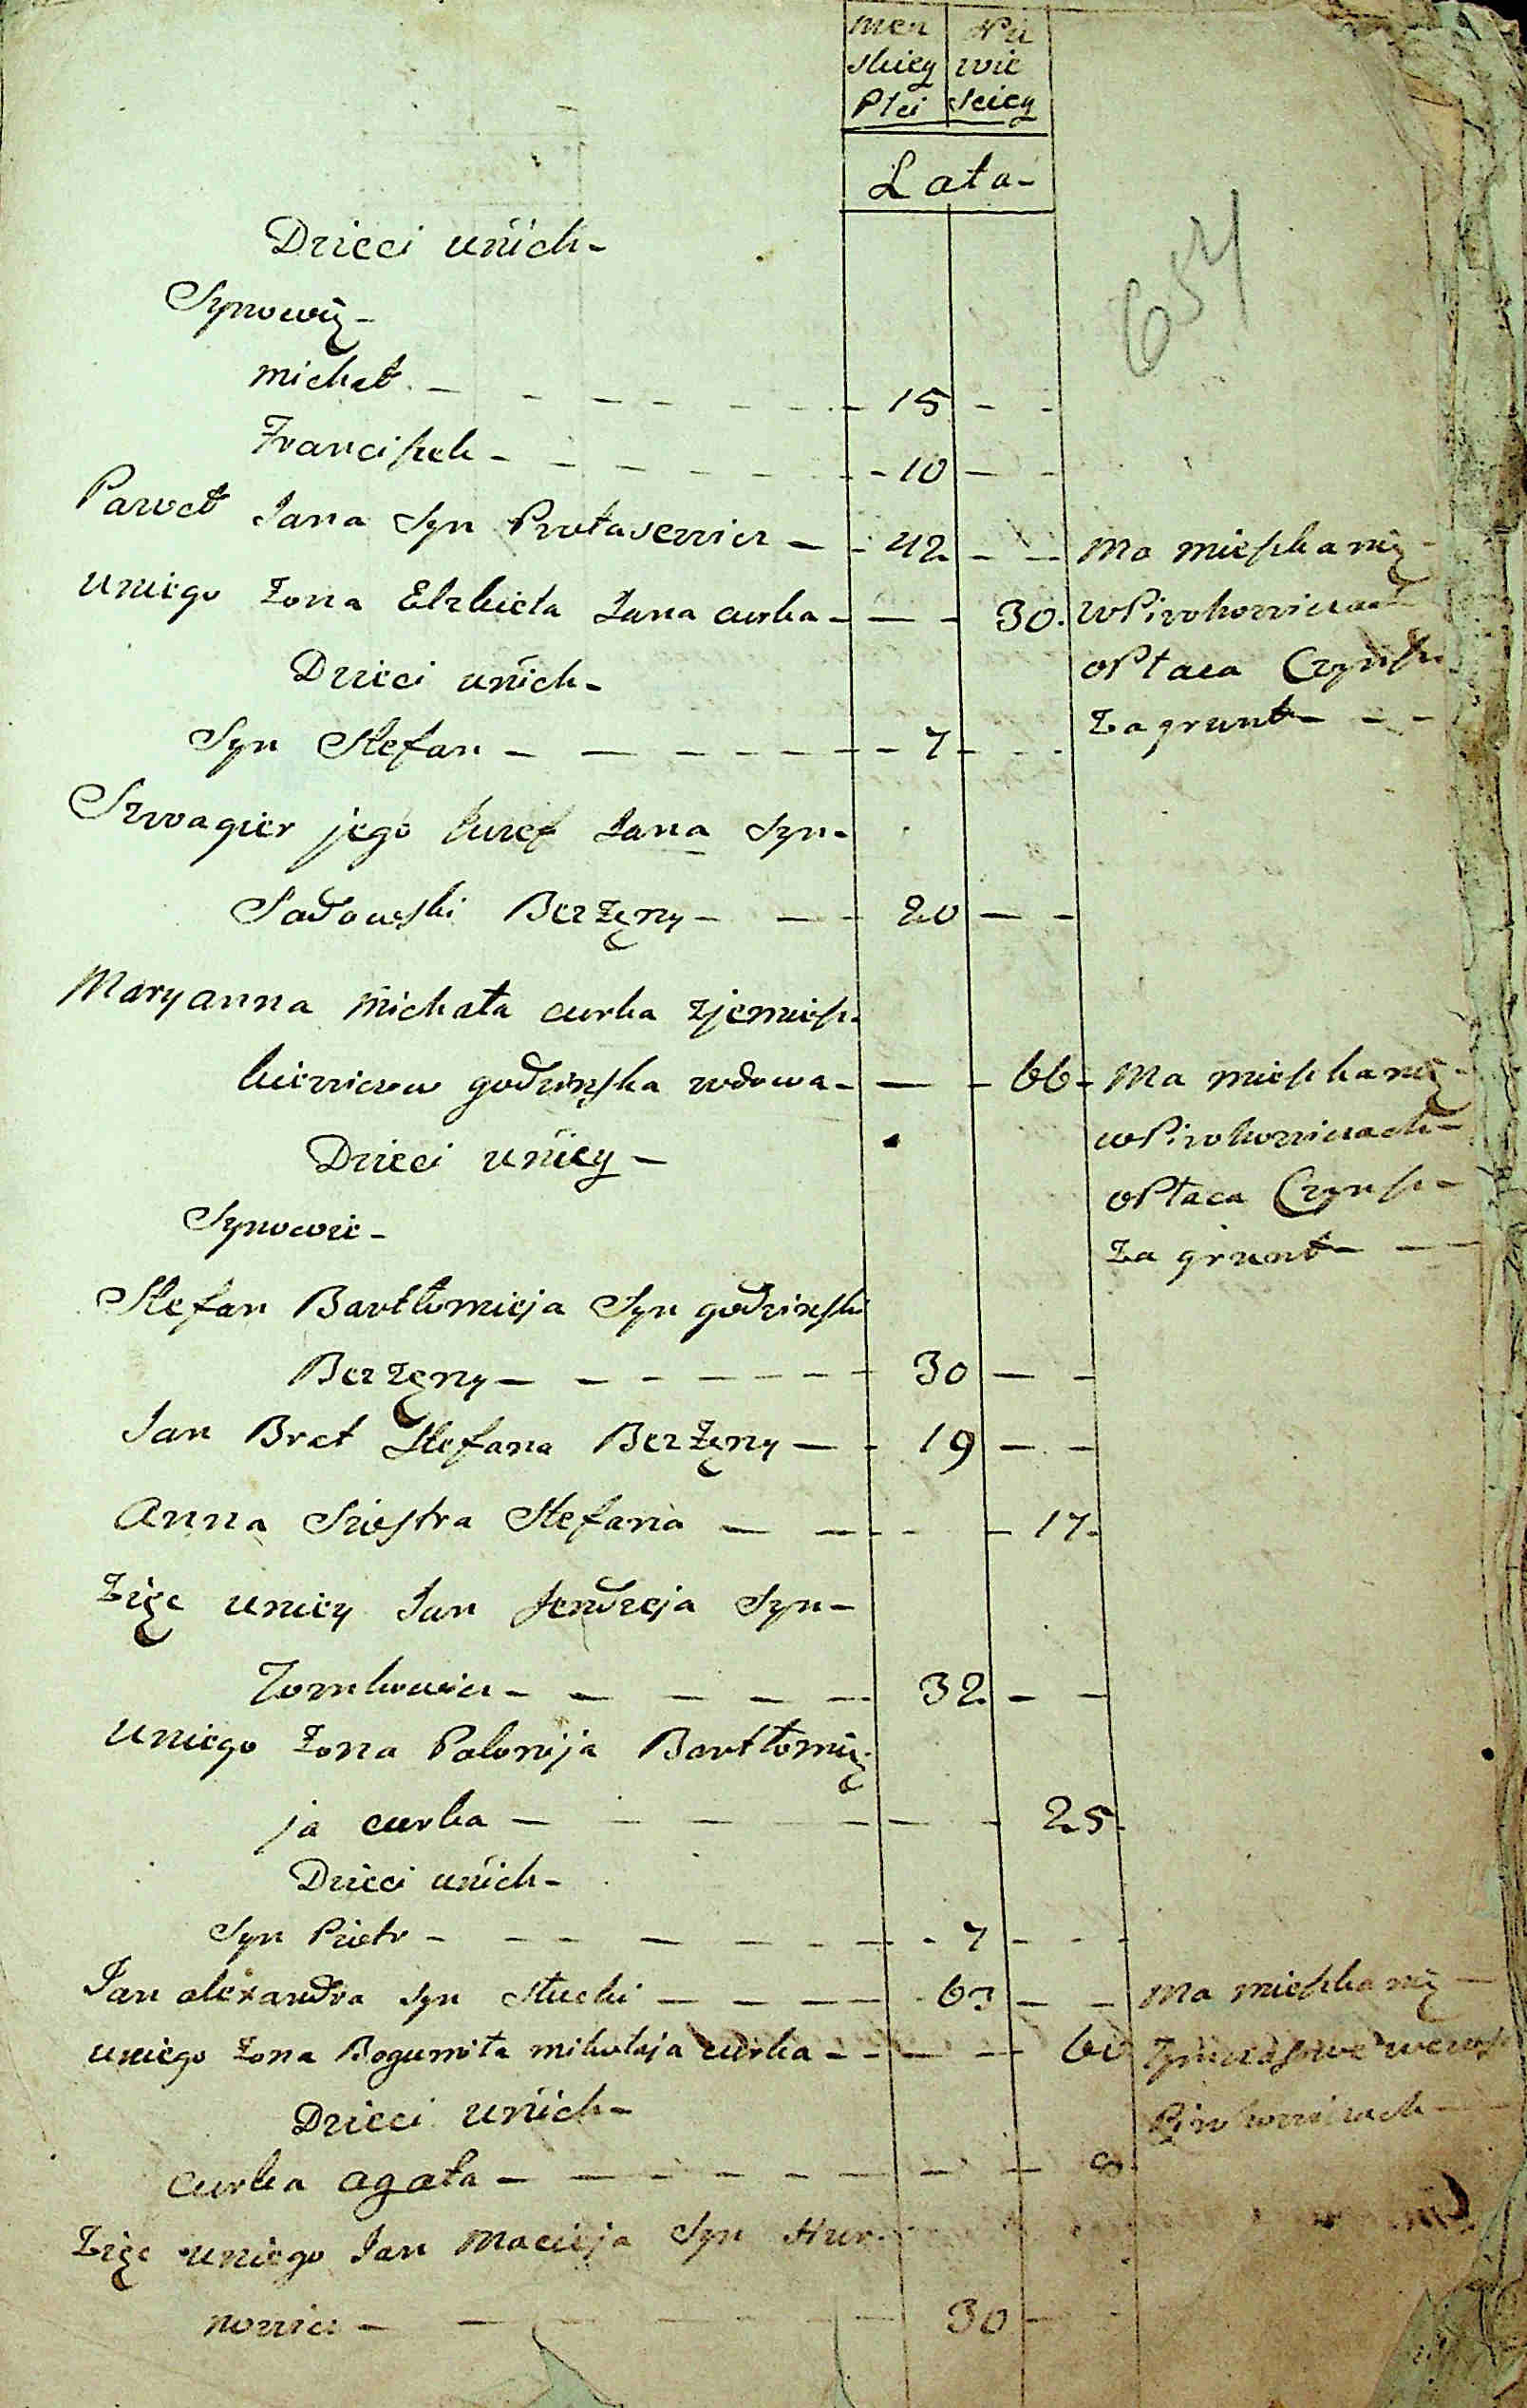 Męz Nie
skiey wie
Płci sciey
Lata-
657
Dzieci unich-
Synowię-
Michał - 15 - -
Franciszek - 10 - -
Paweł Jana Syn Protasewicz - 42 - - Ma mieszkanię
uniego Żona Elzbieta Jana curka - - 30. wPirohowiczach
Dzieci unich- oPłaca Czynsz
Syn Stefan - 7 - - Za grunt - -
Szwagier jego Juzef Jana Syn-
Sadowski Bezżęny - 20 - -
Maryanna Michała curka zjemiesz-
kiewiczow godzinska wdowa - - 66 - Ma mieszkanię
Dzieci uniey - wPirohowiczach -
Synowie - oPłaca Czynsz -
Za grunt - -
Stefan Bartłomieja Syn godzinski
Bezżęny - 30 - -
Jan Brat Stefana Bezżęny - 19 - -
Anna Siostra Stefana - - 17.
Zięc uniey Jan Jendrzeja Syn-
Tomkowicz - 32 - -
uniego Żona Polonija Bartłomię-
ja curka - - 25.
Dzieci unich-
Syn Piotr - 7 - -
Jan alexandra Syn Słucki - 63 - - Ma mieszkanię -
uniego Żona Bogumiła mikołaja curka - - 60 Tymczasowe wewsi
Dzieci unich- Pirohowiczach -
Curka agata - - 8.
Zięc uniego Jan Macieja Syn Hur-
nowicz - 30 -